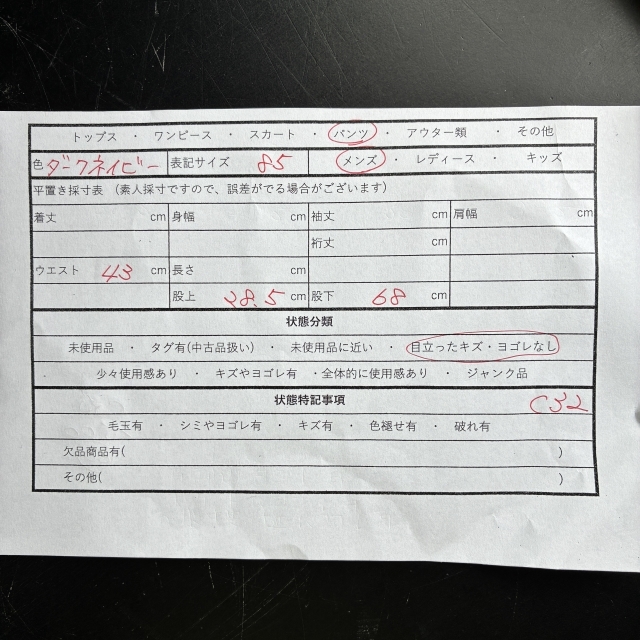 トップス ・ ワンピース ・ スカート ・ パンツ ・ アウター類 ・ その他
色 ダークネイビー 表記サイズ 85 メンズ ・ レディース ・ キッズ
平置き採寸表 (素人採寸ですので、誤差がでる場合がございます)
着丈 cm 身幅 cm 袖丈 cm 肩幅 cm
裄丈 cm
ウエスト 43 cm 長さ cm
股上 28.5 cm 股下 68 cm
状態分類
未使用品 ・ タグ有(中古品扱い) ・ 未使用品に近い ・ 目立ったキズ・ヨゴレなし
少々使用感あり ・ キズやヨゴレ有 ・全体的に使用感あり ・ ジャンク品
状態特記事項 C32
毛玉有 ・ シミやヨゴレ有 ・ キズ有 ・ 色褪せ有 ・ 破れ有
欠品商品有( )
その他( )